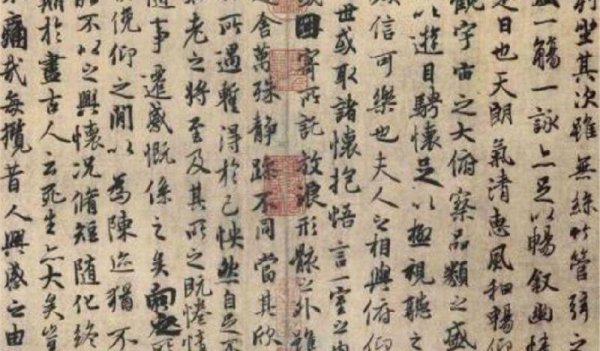 列坐其次雖無絲竹管弦之
盛一觴一詠亦足以暢敘幽情
是日也天朗氣清惠風和暢仰
觀宇宙之大俯察品類之盛
以遊目騁懷足以極視聽之
娛信可樂也夫人之相與俯仰
世或取諸懷抱悟言一室之內
或因寄所託放浪形骸之外雖
趣舍萬殊靜躁不同當其欣
所遇暫得於己怏然自足不
老之將至及其所之既惓情
隨事遷感慨係之矣向之所
俛仰之閒以為陳迹猶不
能不以之興懷況脩短隨化終
期於盡古人云死生亦大矣豈
痛哉每攬昔人興感之由